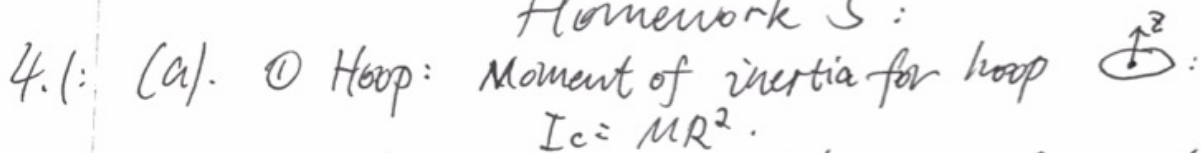 Homework 5:
4.1: (a). ① Hoop: Moment of inertia for hoop z:
Ic = MR².